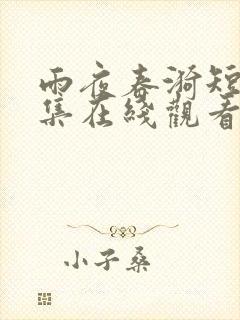 雨夜春漪短
集在綫觀看
小子桑